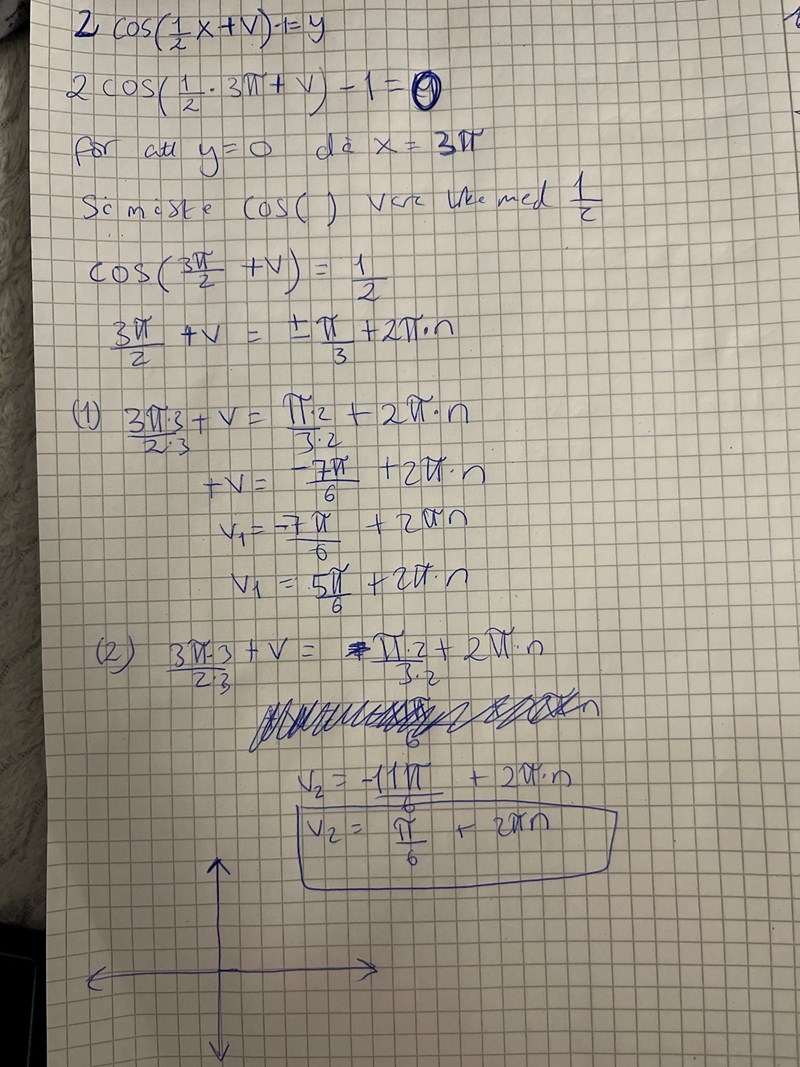 2 cos(1/2 x+v)-1=y
2 cos(1/2 · 3π + v) - 1 = 0
för att y=0 då x = 3π
Så måste cos( ) vara lika med 1/2
cos(3π/2 + v) = 1/2
3π/2 + v = ± π/3 + 2π·n
(1) 3π·3/2·3 + v = π·2/3·2 + 2π·n
+v = -7π/6 + 2π·n
v₁ = -7π/6 + 2πn
v₁ = 5π/6 + 2π·n
(2) 3π·3/2·3 + v = - π·2/3·2 + 2π·n
v₂ = -11π/6 + 2π·n
v₂ = π/6 + 2πn